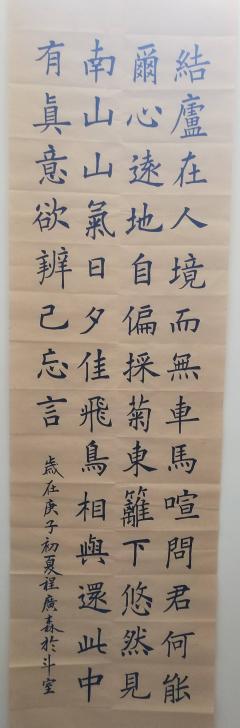 結廬在人境而無車馬喧問君何能
爾心遠地自偏採菊東籬下悠然見
南山山氣日夕佳飛鳥相與還此中
有真意欲辨已忘言
歲在庚子初夏程廣森於斗室